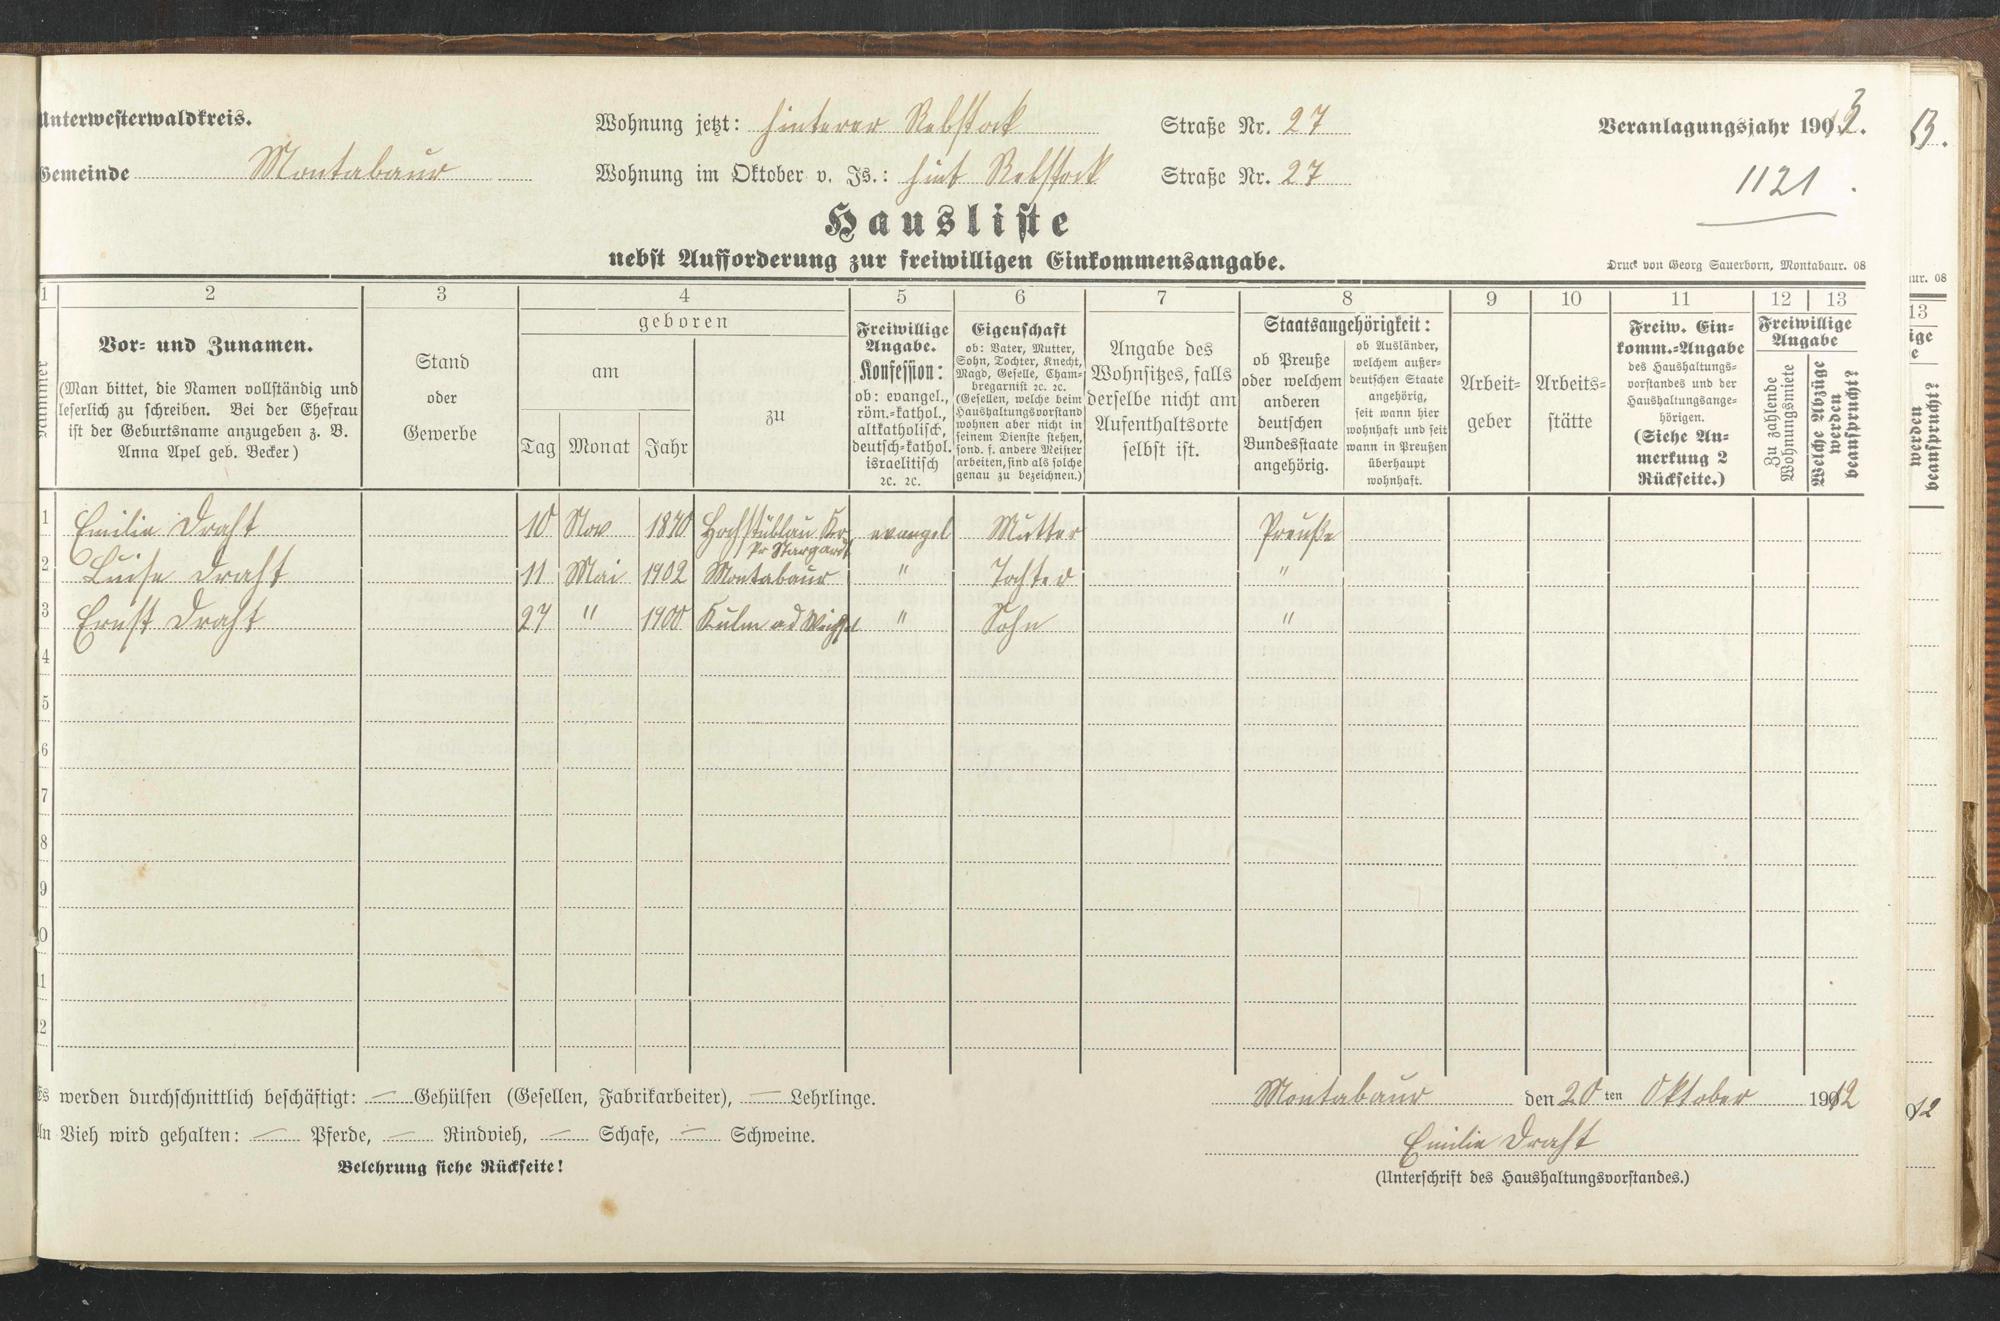 Unterwesterwaldkreis.
Wohnung jetzt: hinterer Rebstock Straße Nr. 27
Veranlagungsjahr 1913.
Gemeinde Montabaur
Wohnung im Oktober v. Js.: hint Rebstock Straße Nr. 27
1121
Hausliste
nebst Aufforderung zur freiwilligen Einkommensangabe.
Druck von Georg Sauerborn, Montabaur. 08
1 2 3 4 5 6 7 8 9 10 11 12 13
Nummer
Vor- und Zunamen.
(Man bittet, die Namen vollständig und
leserlich zu schreiben. Bei der Ehefrau
ist der Geburtsname anzugeben z. B.
Anna Apel geb. Becker)
Stand
oder
Gewerbe
geboren
am
Tag Monat Jahr
zu
Freiwillige
Angabe.
Konfession:
ob: evangel.,
röm.-kathol.,
altkatholisch,
deutsch-kathol.
israelitisch
ꝛc. ꝛc.
Eigenschaft
ob: Vater, Mutter,
Sohn, Tochter, Knecht,
Magd, Geselle, Cham-
bregarnist ꝛc. ꝛc.
(Gesellen, welche beim
Haushaltungsvorstand
wohnen aber nicht in
seinem Dienste stehen,
sond. f. andere Meister
arbeiten, sind als solche
genau zu bezeichnen.)
Angabe des
Wohnsitzes, falls
derselbe nicht am
Aufenthaltsorte
selbst ist.
Staatsangehörigkeit:
ob Preuße
oder welchem
anderen
deutschen
Bundesstaate
angehörig.
ob Ausländer,
welchem außer-
deutschen Staate
angehörig,
seit wann hier
wohnhaft und seit
wann in Preußen
überhaupt
wohnhaft.
Arbeit-
geber
Arbeits-
stätte
Freiw. Ein-
komm.-Angabe
des Haushaltungs-
vorstandes und der
Haushaltungsange-
hörigen.
(Siehe An-
merkung 2
Rückseite.)
Freiwillige
Angabe
Zu zahlende
Wohnungsmiete
Welche Abzüge
werden
beansprucht?
1 Emilie Draht 10 Nov 1870 Hochstüblau Kr. Pr Stargard evangel Mutter Preuße
2 Luise Draht 11 Mai 1902 Montabaur " Tochter "
3 Ernst Draht 27 " 1900 Kulm a d Weichsel " Sohn "
4
5
6
7
8
9
10
11
12
Es werden durchschnittlich beschäftigt: — Gehülfen (Gesellen, Fabrikarbeiter), — Lehrlinge.
Montabaur den 20ten Oktober 1912
An Vieh wird gehalten: — Pferde, — Rindvieh, — Schafe, — Schweine.
Emilie Draht
Belehrung siehe Rückseite!
(Unterschrift des Haushaltungsvorstandes.)